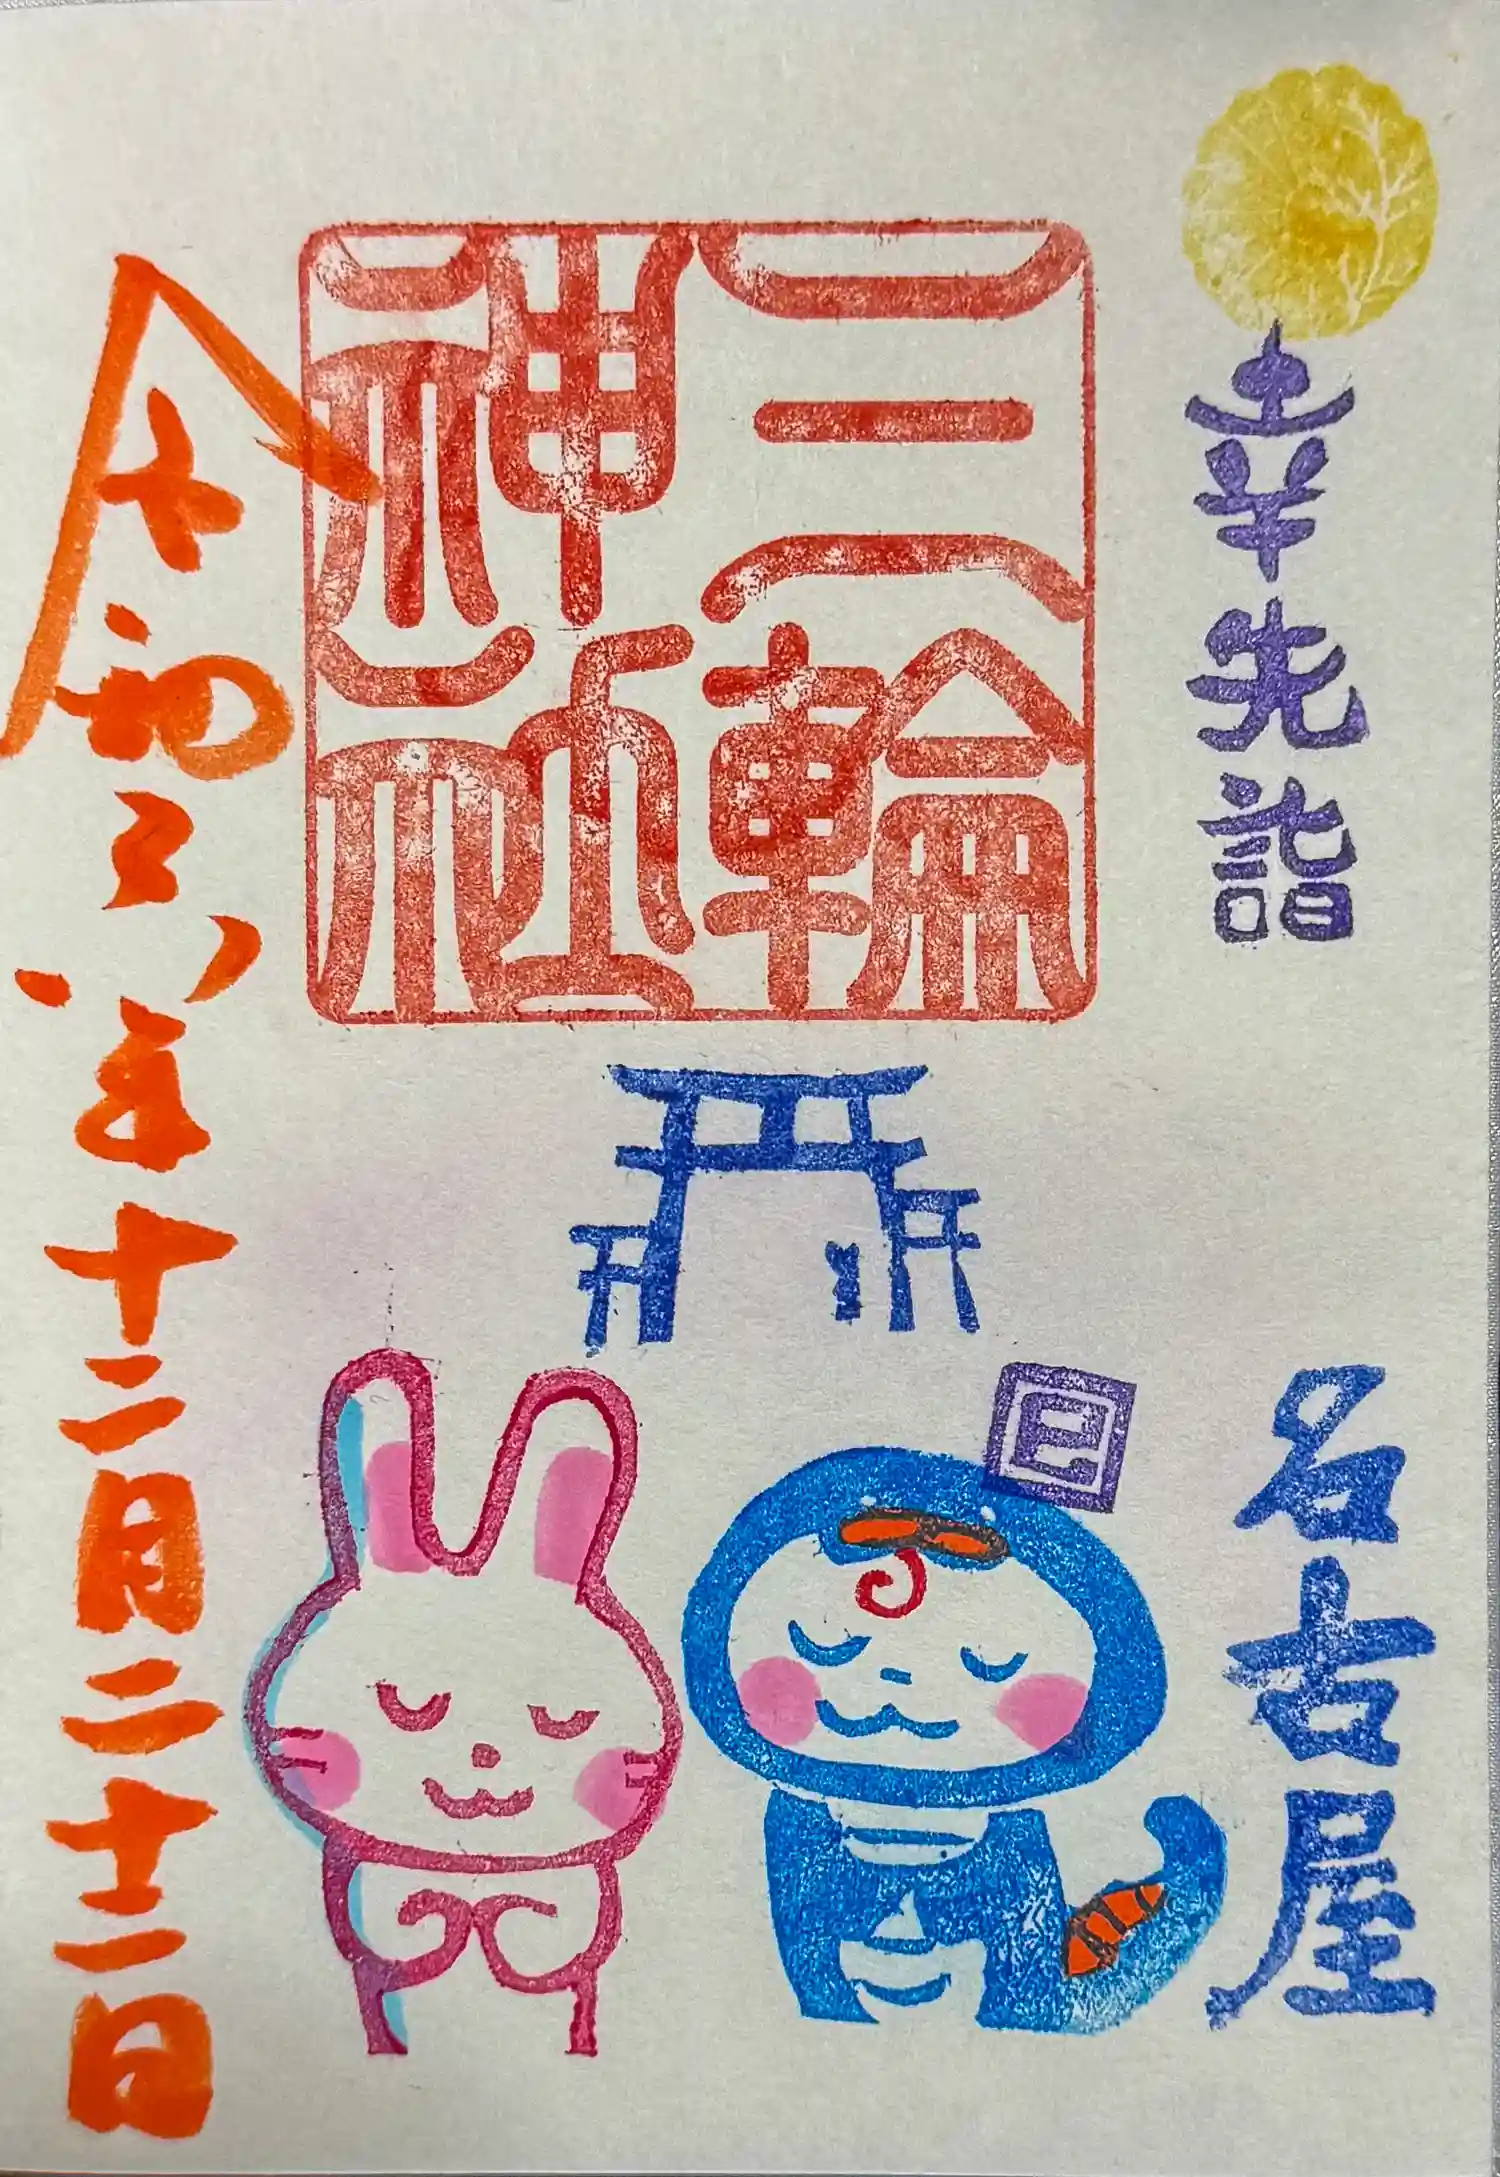 幸先詣
名古屋
三輪
神社
巳
令和六年十二月二十二日